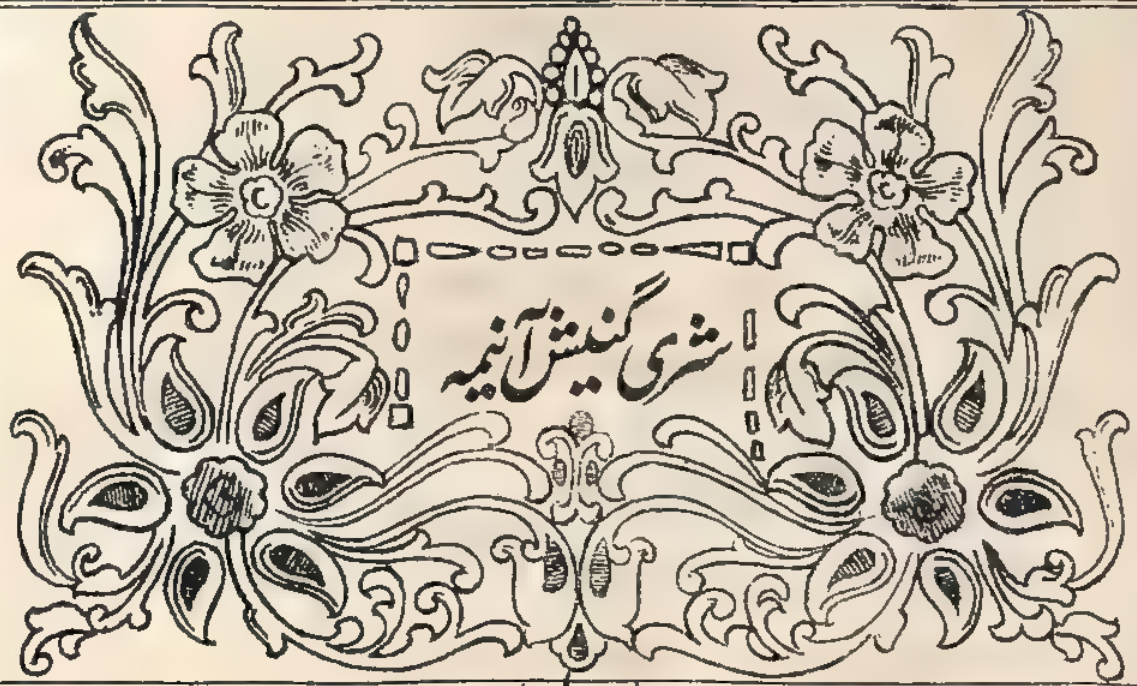 شری گنیش آئیمہ